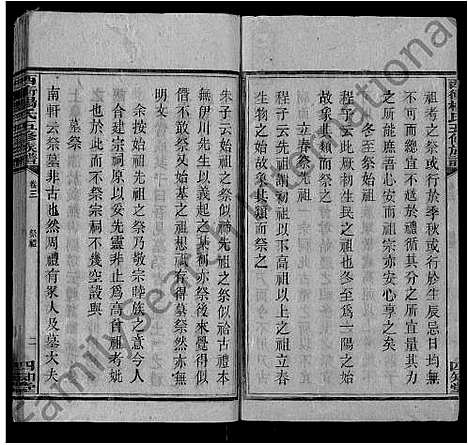 祖考之祭或行於季秋或行於生辰忌日均無
不可而總宜不越於禮循其分之所宜量其力
之所能庶吾心安而祖宗亦安心享之矣
冬至祭始祖
程子云此厥初生民之祖也冬至爲一陽之始
故象其類而祭之
立春祭先祖
程子云初祖以下高祖以上之祖也立春
生物之始故象其類而祭之
朱子云始祖之祭似禘先祖之祭似祫古禮本
無伊川先生以義起之某初亦祭後來覺得似
僭不敢祭始基之祖想祇有得墓祭然亦無
明文
余按始祖先祖之祭乃敬宗睦族之意今人
合建宗祠原以妥先靈非止爲高曾祖考妣
也然而不祭宗祠不幾空設與
墓祭
南軒云祭墓非古也然周禮有冢人及墓大夫
卷三
祭禮
二
四知堂
Family Search International